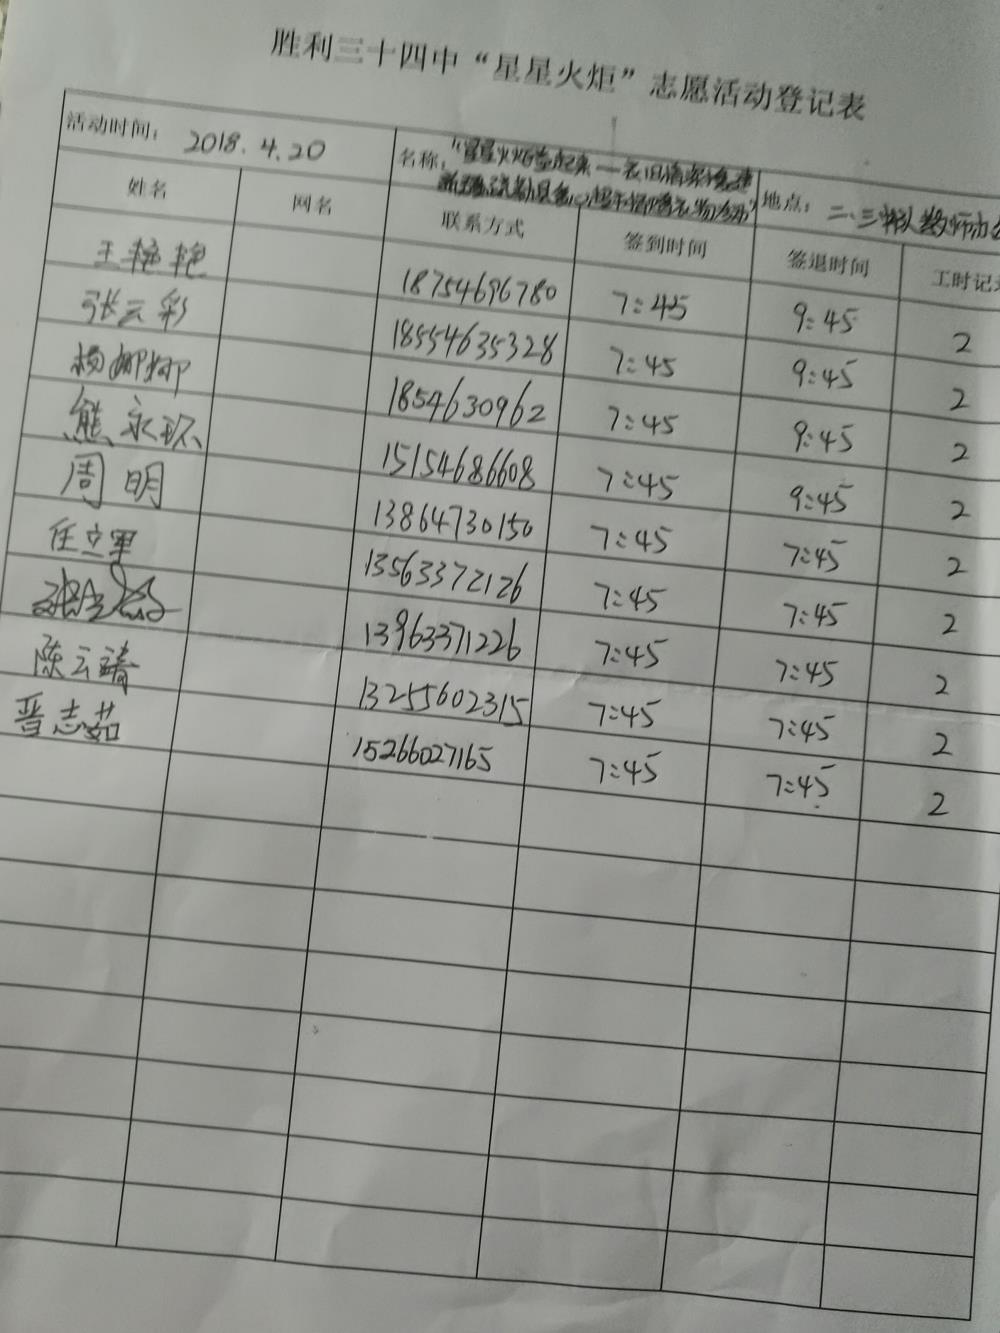 胜利三十四中“星星火炬”志愿活动登记表
活动时间： 2018.4.20 名称： 地点：二、三
姓名 网名 联系方式 签到时间 签退时间 工时记
王艳艳 18754696780 7:45 9:45 2
张云彩 18554635328 7:45 9:45 2
杨娜娜 1854630962 7:45 9:45 2
熊永玖 15154686608 7:45 9:45 2
周明 13864730150 7:45 7:45 2
任立军 13563372126 7:45 7:45 2
13963371226 7:45 7:45 2
陈云靖 13255602315 7:45 7:45 2
晋志茹 15266027165 7:45 7:45 2